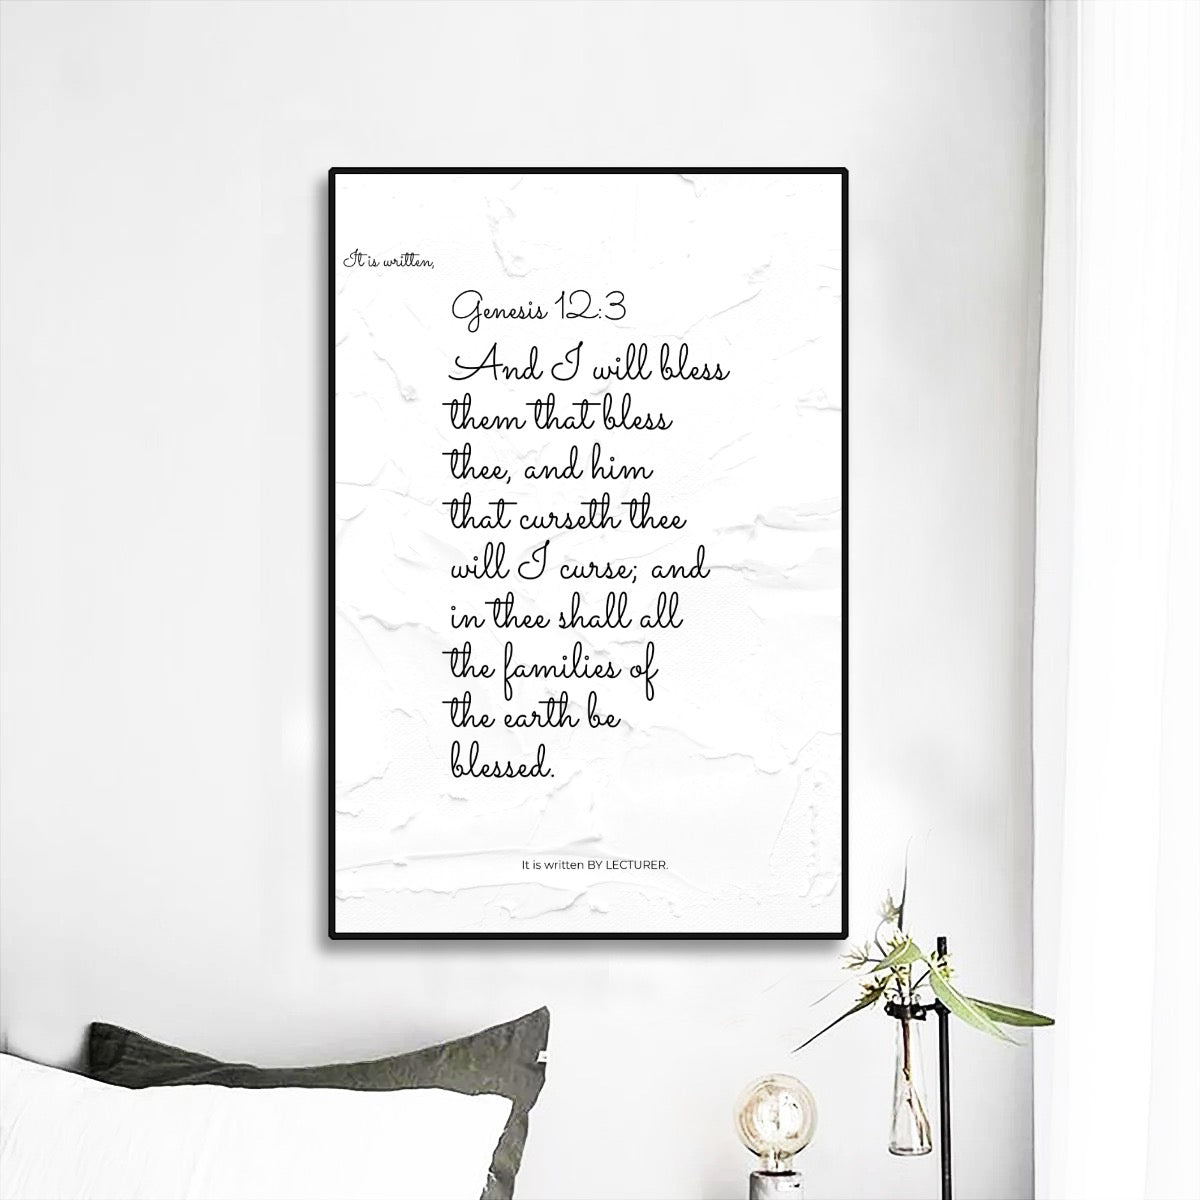 It is written,
Genesis 12:3
And I will bless
them that bless
thee, and him
that curseth thee
will I curse; and
in thee shall all
the families of
the earth be
blessed.
It is written BY LECTURER.